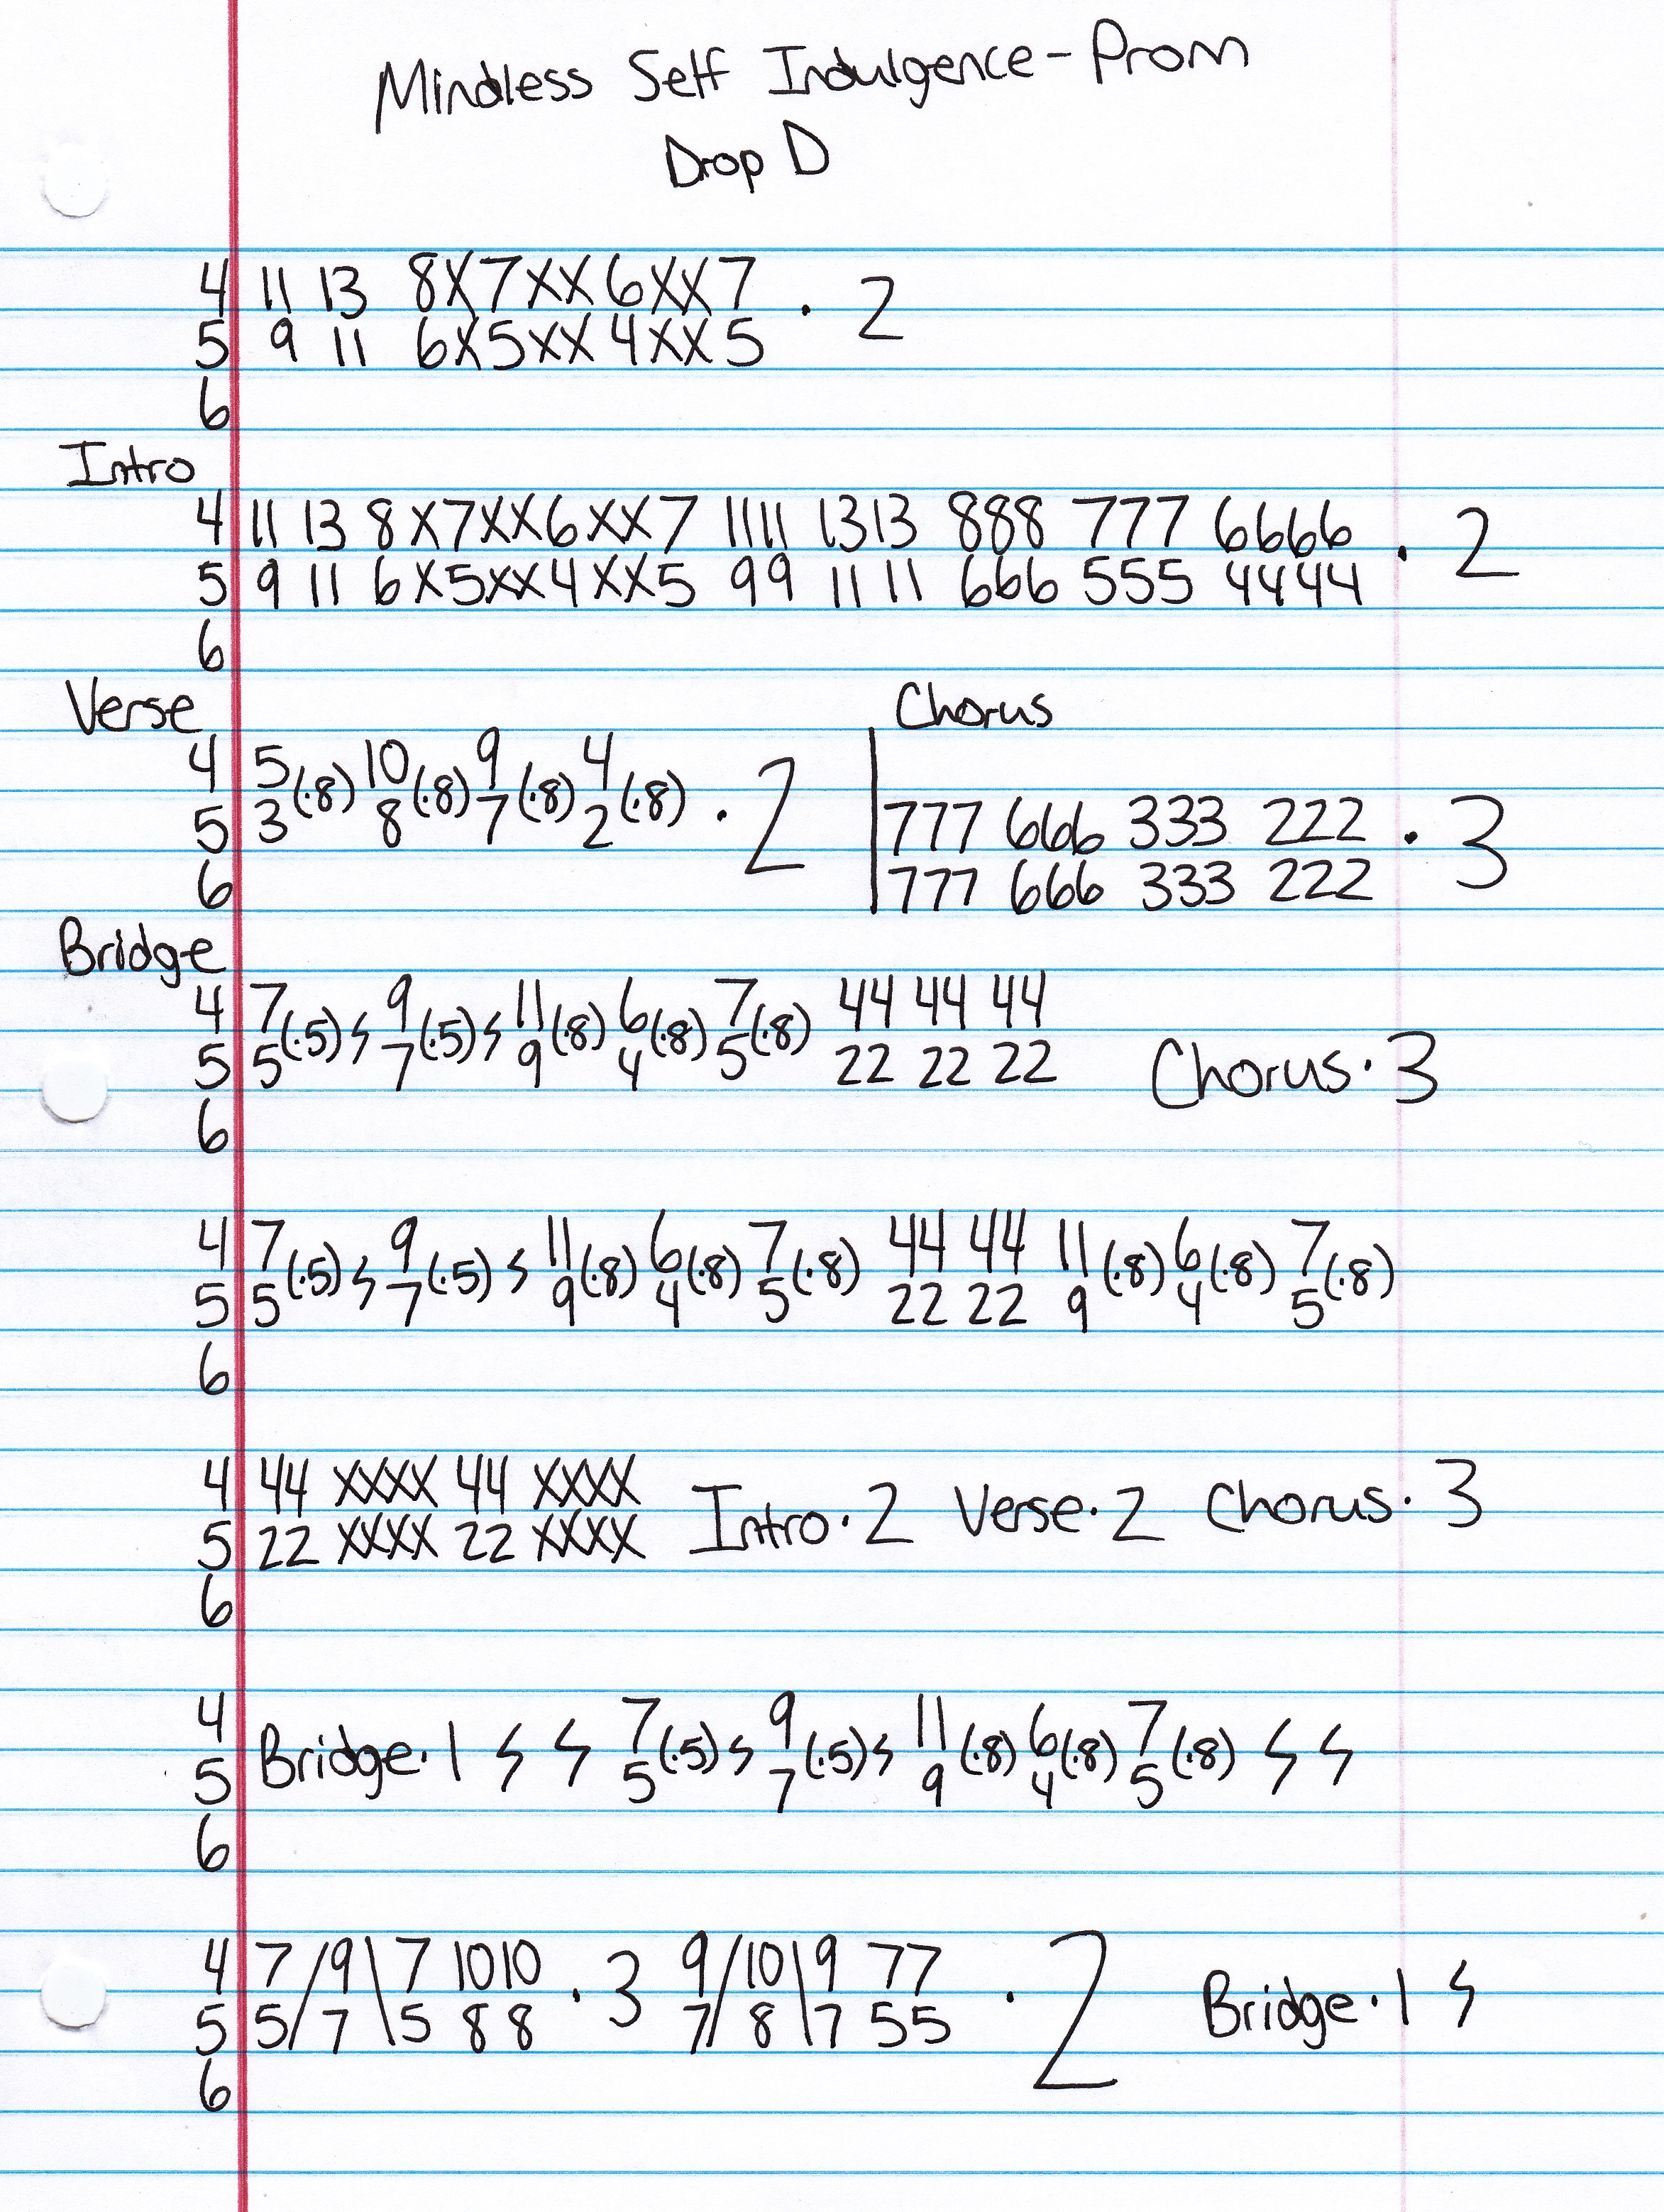 Mindless Self Indulgence - Prom
Drop D
4 11 13 8X7XX6XX7 · 2
5 9 11 6X5XX4XX5
6
Intro
4 11 13 8X7XX6XX7 1111 1313 888 777 6666 · 2
5 9 11 6X5XX4XX5 99 11 11 666 555 4444
6
Verse Chorus
4 5(·8) 10(·8) 9(·8) 4(·8) · 2
5 3 8 7 2 777 666 333 222 · 3
6 777 666 333 222
Bridge
4 7(·5)ϟ 9(·5)ϟ 11(·8) 6(·8) 7(·8) 44 44 44
5 5 7 9 4 5 22 22 22 Chorus · 3
6
4 7(·5)ϟ 9(·5)ϟ 11(·8) 6(·8) 7(·8) 44 44 11(·8) 6(·8) 7(·8)
5 5 7 9 4 5 22 22 9 4 5
6
4 44 XXXX 44 XXXX Intro · 2 Verse · 2 Chorus · 3
5 22 XXXX 22 XXXX
6
4 Bridge · 1 ϟ ϟ 7(·5)ϟ 9(·5)ϟ 11(·8) 6(·8) 7(·8) ϟ ϟ
5 5 7 9 4 5
6
4 7/9\7 1010 · 3 9/10\9 77 · 2 Bridge · 1 ϟ
5 5/7\5 88 7/8\7 55
6